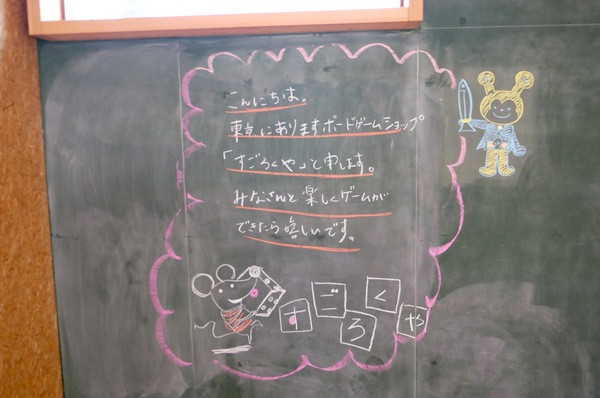 こんにちは。
東京にありますボードゲームショップ
「すごろくや」と申します。
みなさんと楽しくゲームが
できたら嬉しいです。
すごろくや